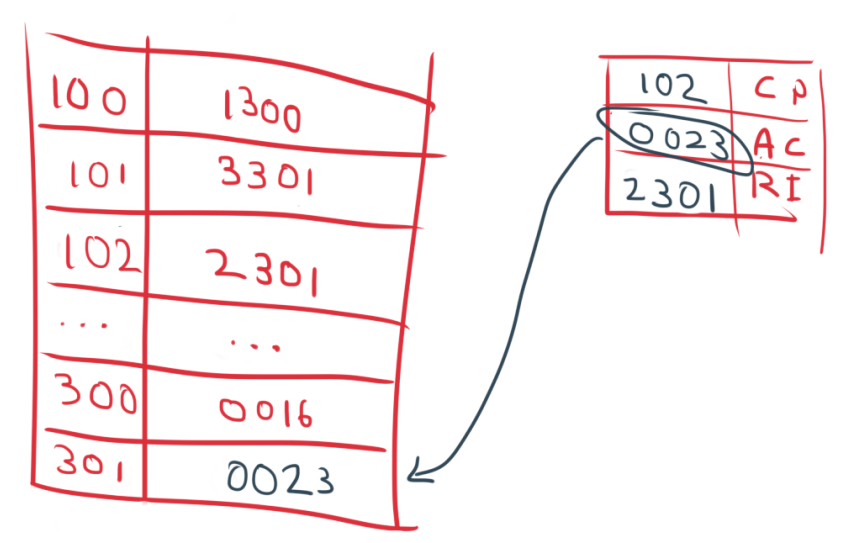 100 1300
101 3301
102 2301
... ...
300 0016
301 0023
102 CP
0023 AC
2301 RI